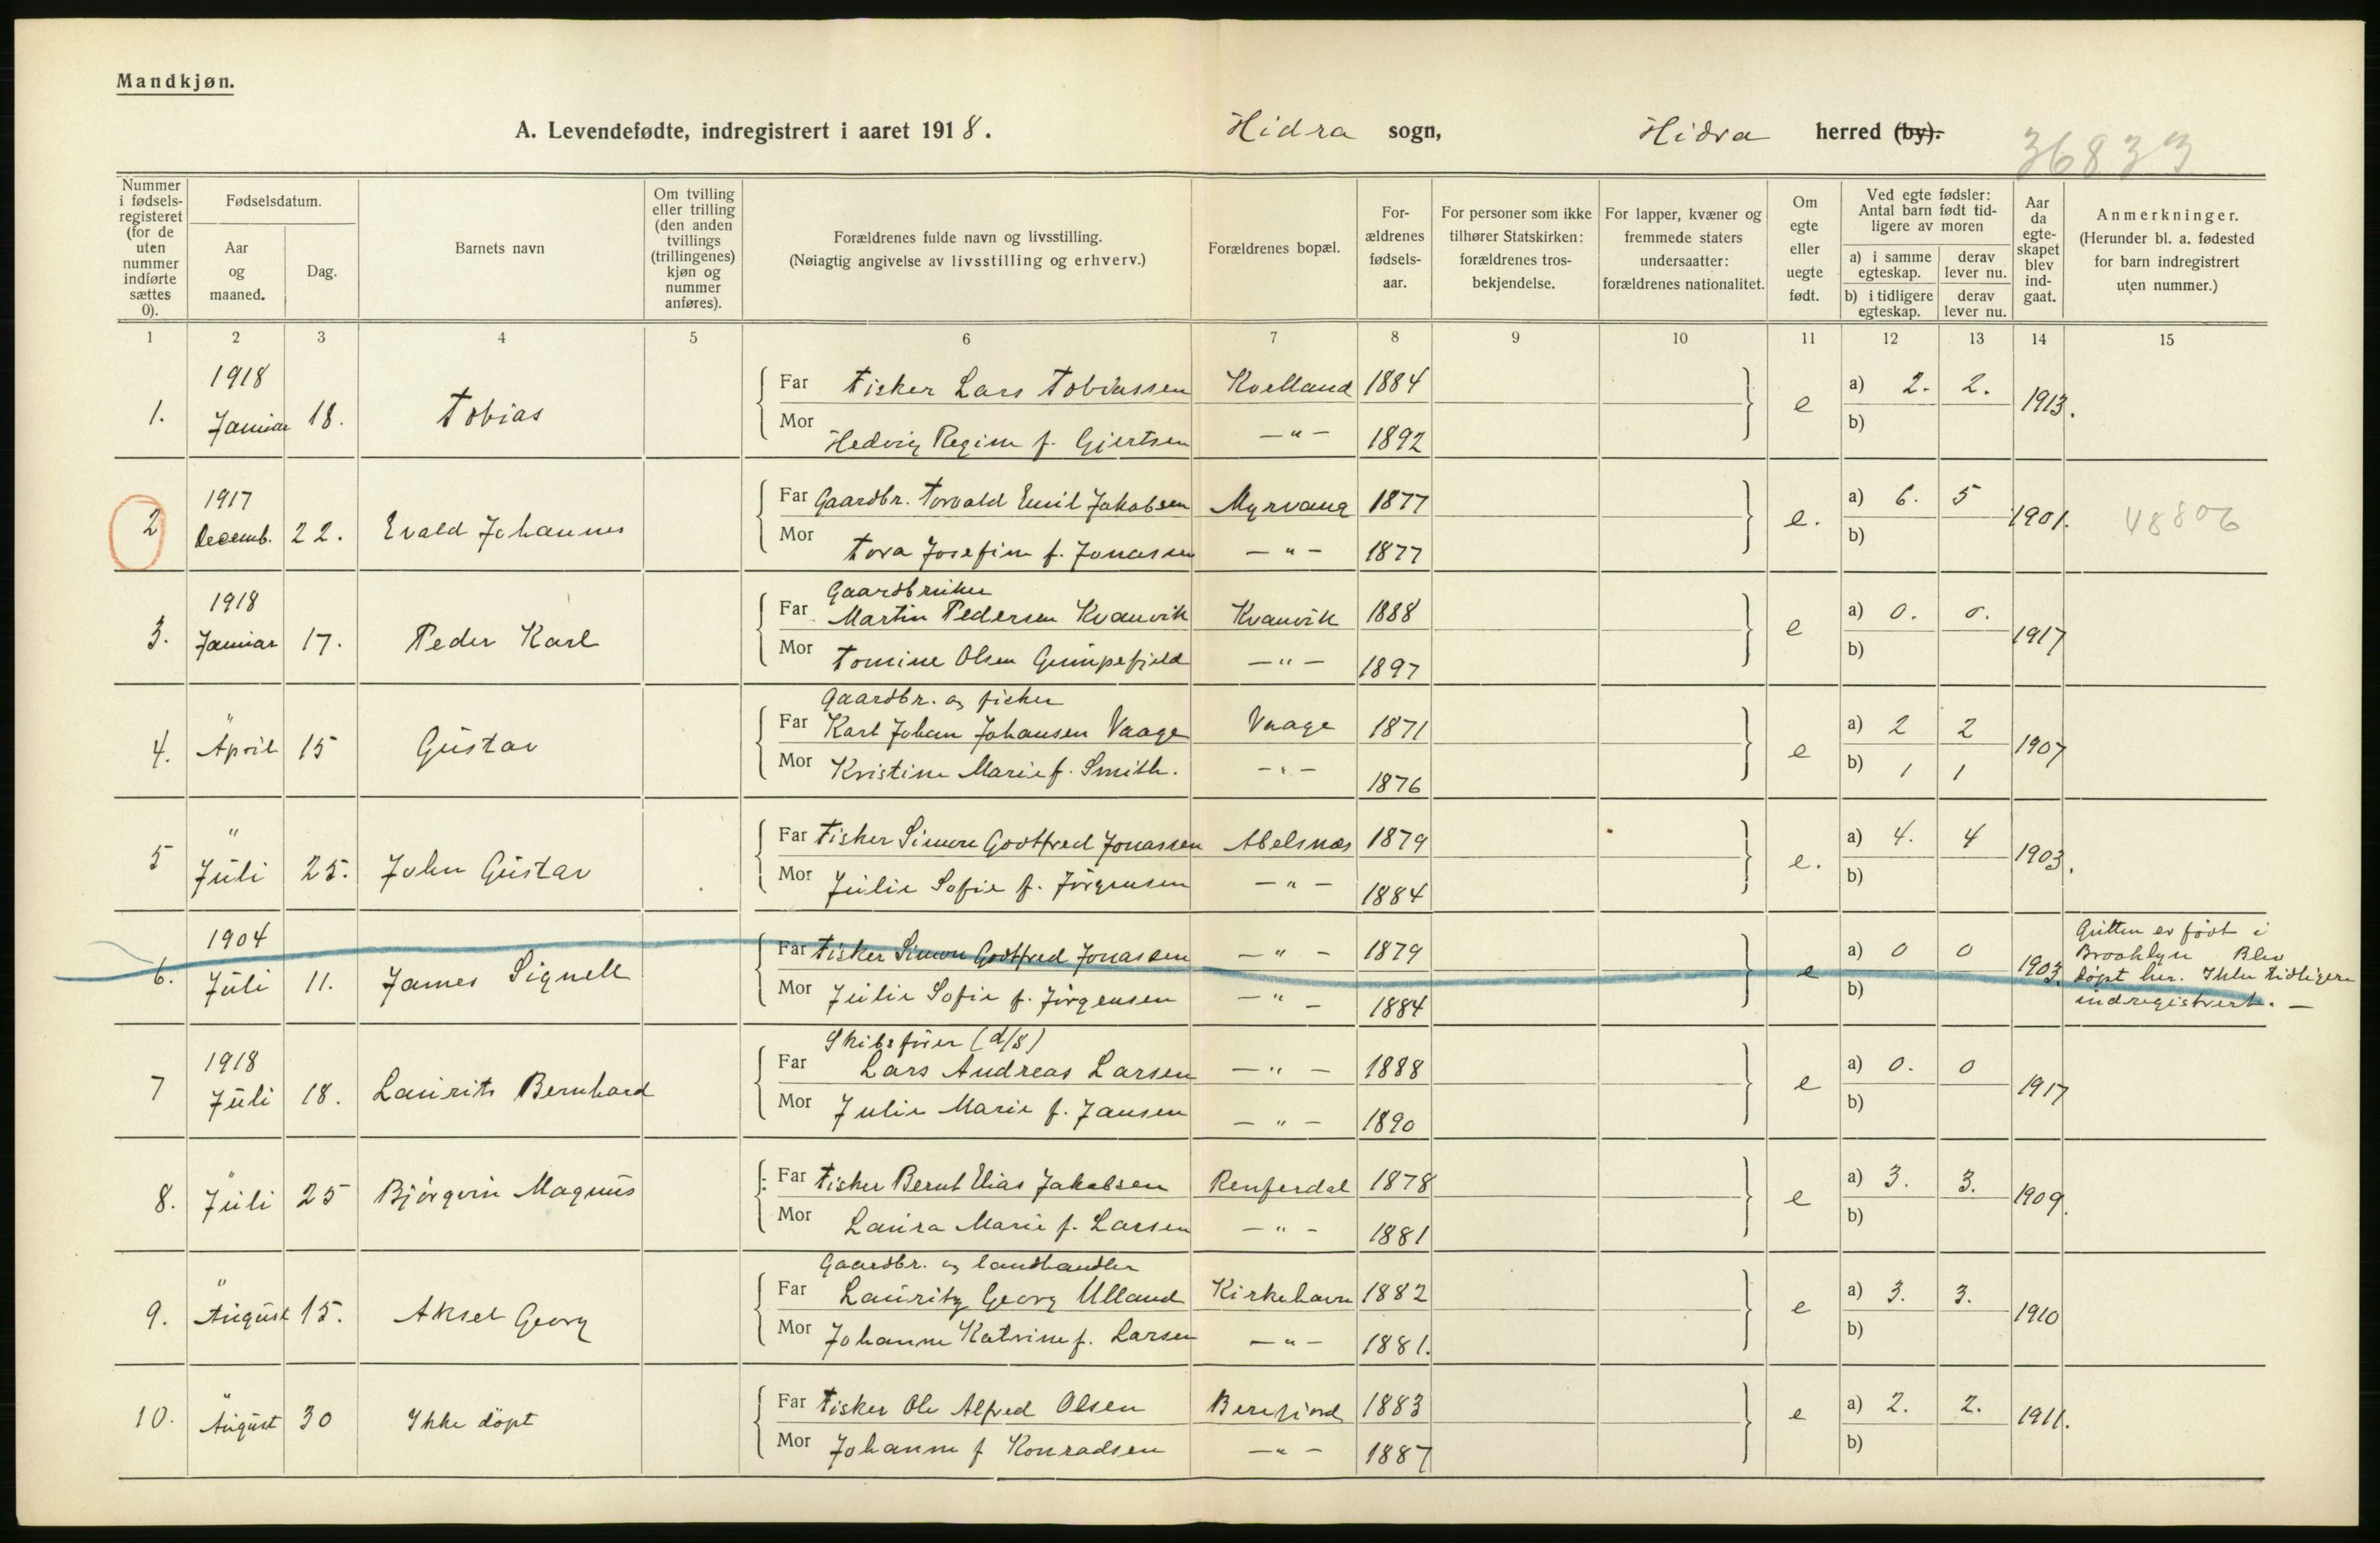 Mandkjøn.
A. Levendefødte, indregistrert i aaret 1918. Hidra sogn, Hidra herred (by).
36833
Nummer i fødselsregisteret (for de uten nummer indførte sættes 0).
Fødselsdatum.
Aar og maaned.
Dag.
Barnets navn
Om tvilling eller trilling (den anden tvillings (trillingenes) kjøn og nummer anføres).
Forældrenes fulde navn og livsstilling.
(Nøiagtig angivelse av livsstilling og erhverv.)
Forældrenes bopæl.
Forældrenes fødselsaar.
For personer som ikke tilhører Statskirken: forældrenes trosbekjendelse.
For lapper, kvæner og fremmede staters undersaatter: forældrenes nationalitet.
Om egte eller uegte født.
Ved egte fødsler: Antal barn født tidligere av moren
a) i samme egteskap. derav lever nu.
b) i tidligere egteskap. derav lever nu.
Aar da egteskapet blev indgaat.
Anmerkninger.
(Herunder bl. a. fødested for barn indregistrert uten nummer.)
1 2 3 4 5 6 7 8 9 10 11 12 13 14 15
1. 1918 Januar 18. Tobias
Far Fisker Lars Tobiassen Kvelland 1884 e a) 2. 2. 1913.
Mor Hedvig Regine f. Gjertsen — " — 1892 b)
2 1917 Decemb. 22. Evald Johannes
Far Gaardbr. Torvald Emil Jakobsen Myrvang 1877 e. a) 6. 5 1901. 48806
Mor Tora Josefine f. Jonassen — " — 1877 b)
3. 1918 Januar 17. Peder Karl
Gaardbruker
Far Martin Pedersen Kvanvik Kvanvik 1888 e a) 0. 0. 1917
Mor Tomine Olsen Gumpefjeld — " — 1897 b)
4. " April 15 Gustav
Gaardbr. og fisker
Far Karl Johan Johansen Vaage Vaage 1871 e a) 2 2 1907
Mor Kristine Marie f. Smith. — " — 1876 b) 1 1
5 " Juli 25. John Gustav
Far Fisker Simon Godtfred Jonassen Abelsnæs 1879 e. a) 4. 4 1903.
Mor Julie Sofie f. Jörgensen — " — 1884 b)
6. 1904 Juli 11. James Signell
Far Fisker Simon Godtfred Jonassen — " — 1879 e a) 0 0 1903.
Mor Julie Sofie f. Jörgensen — " — 1884 b)
Gutten er födt i
Brooklyn Blev
döpt her. Ikke tidligere
indregistrert. —
7 1918 Juli 18. Laurits Bernhard
Skibsförer (d/s)
Far Lars Andreas Larsen — " — 1888 e a) 0. 0 1917
Mor Julie Marie f. Jansen — " — 1890 b)
8. " Juli 25 Björgvin Magnus
Far Fisker Bernt Elias Jakobsen Renferdal 1878 e a) 3. 3. 1909.
Mor Laura Marie f. Larsen — " — 1881 b)
9. " August 15. Aksel Georg
Gaardbr. og landhandler
Far Lauritz Georg Ulland Kirkehavn 1882 e a) 3. 3. 1910
Mor Johanne Katrine f. Larsen — " — 1881. b)
10. " August 30 Ikke döpt
Far Fisker Ole Alfred Olsen Berefjord 1883 e a) 2. 2. 1911.
Mor Johanne f Konradsen — " — 1887 b)